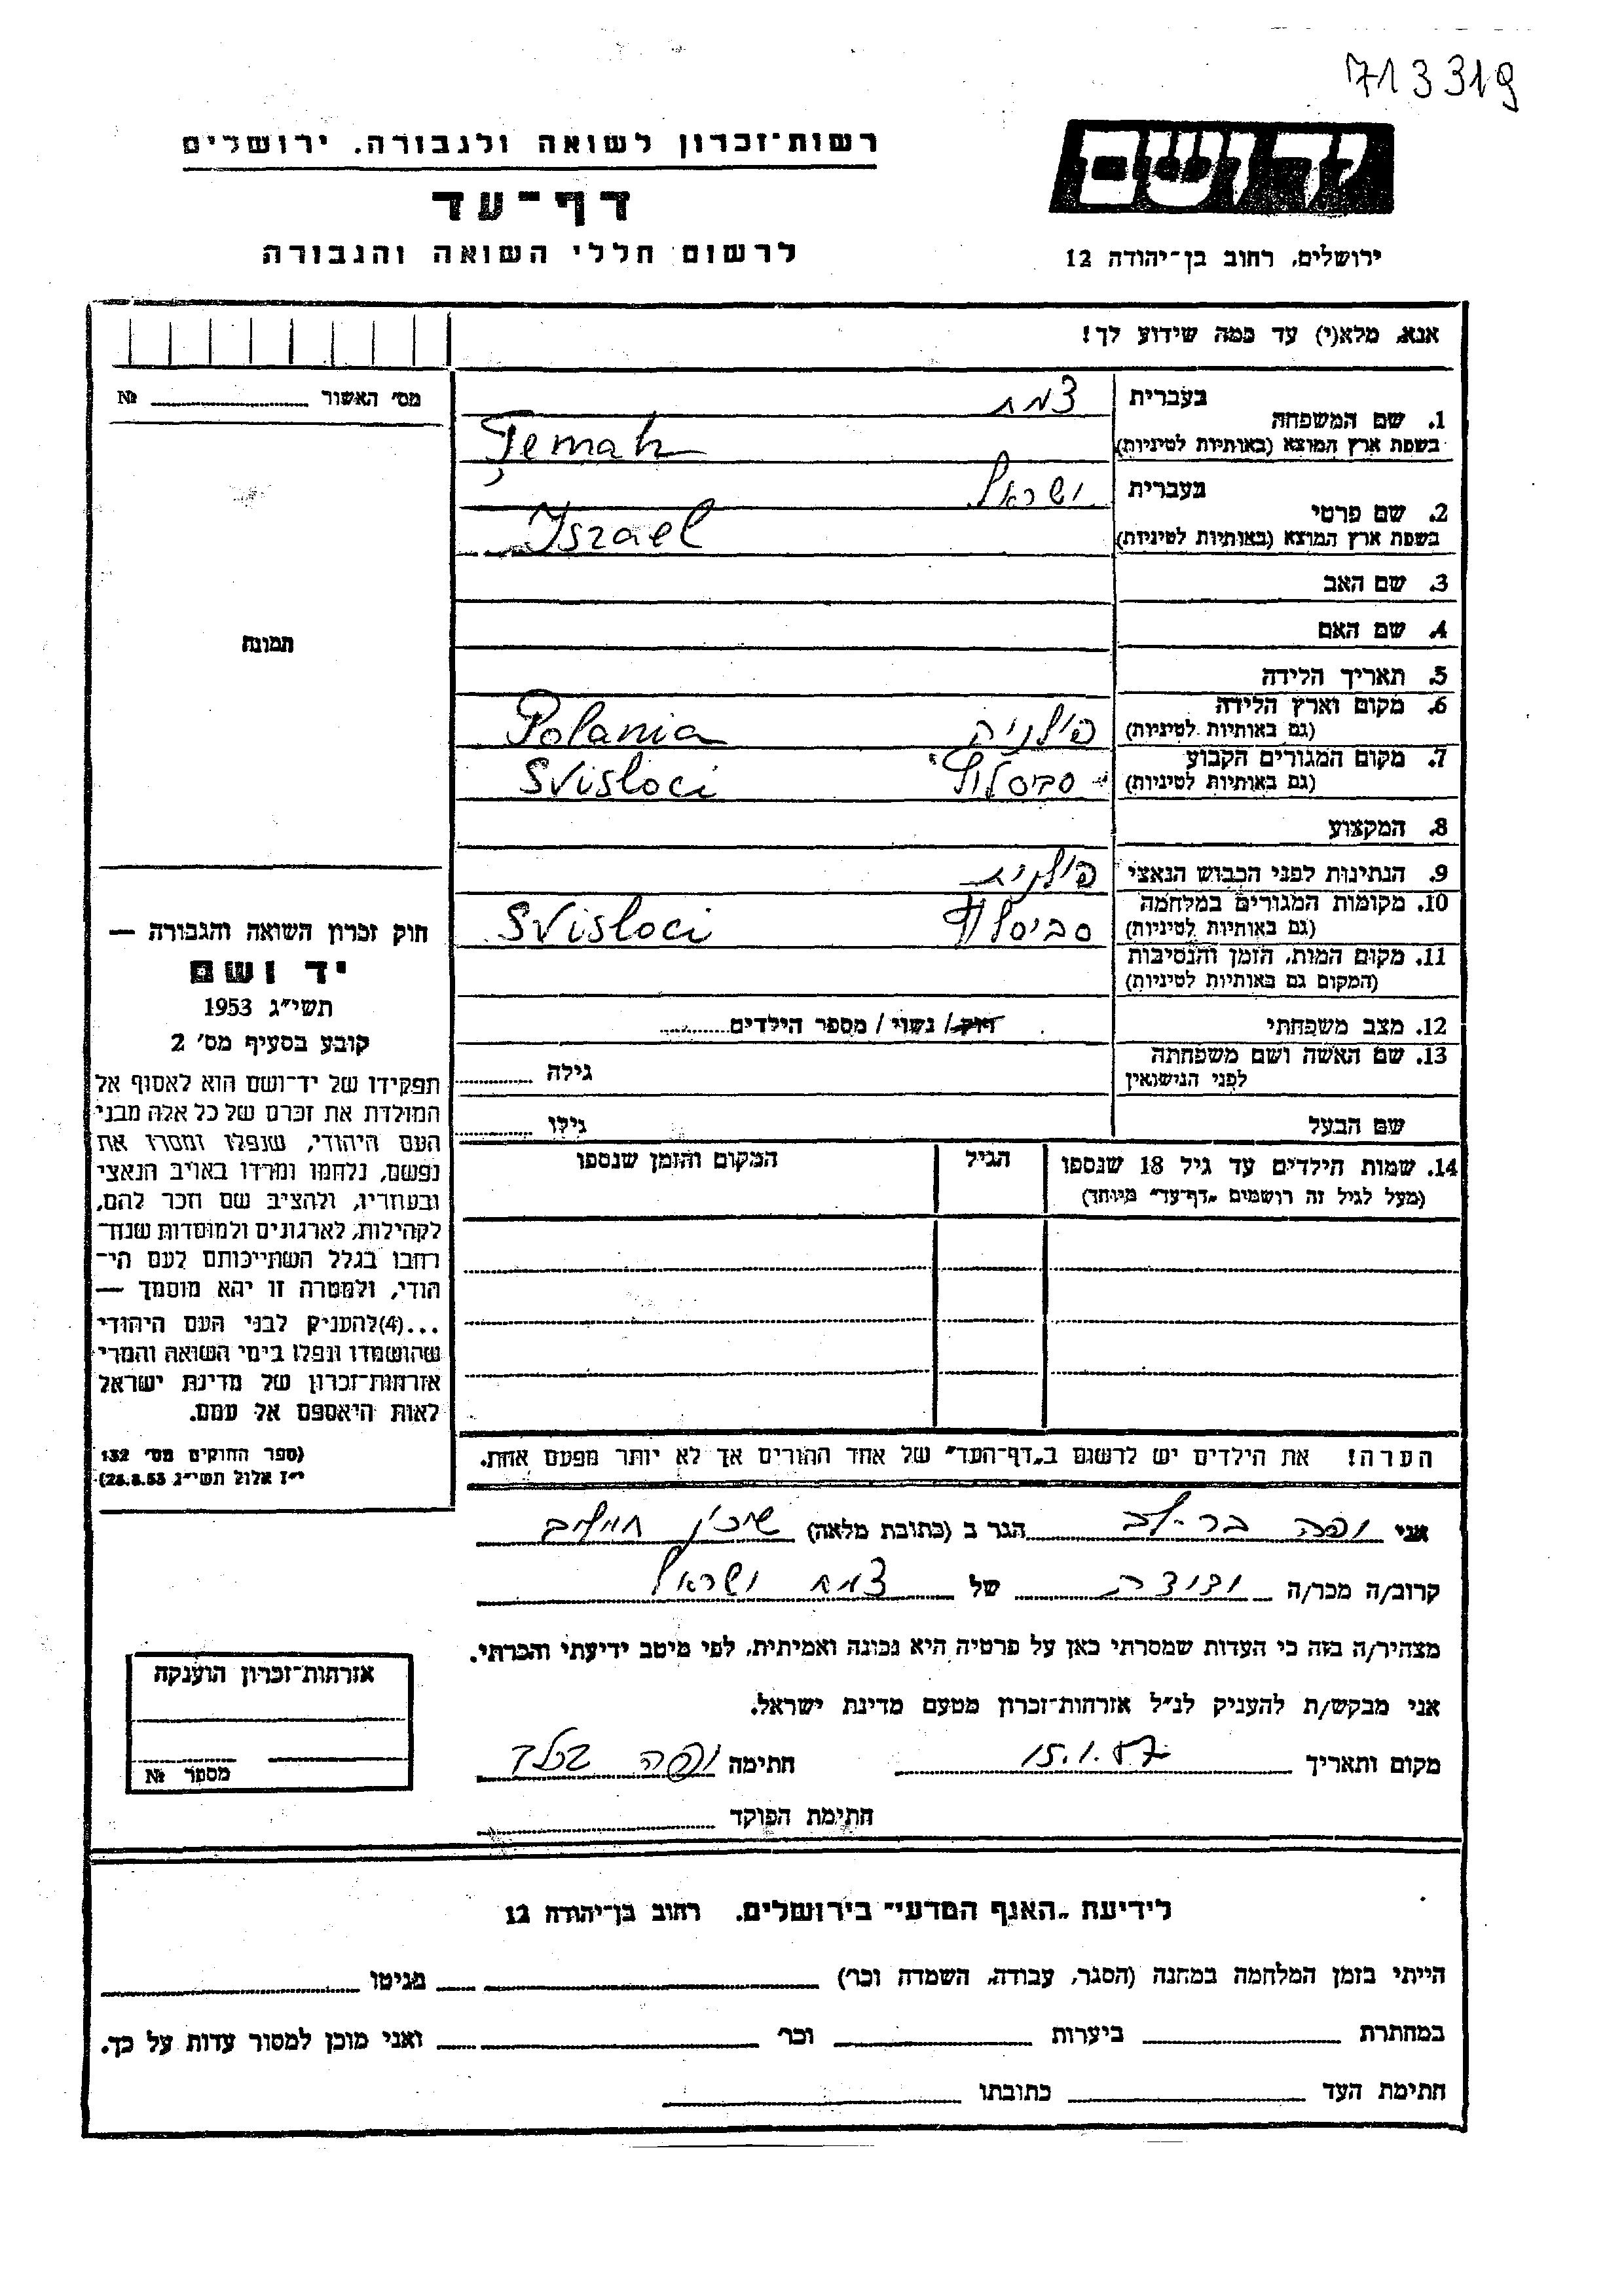 713319
רשות־זכרון לשואה ולגבורה. ירושלים
יד ושם
דף־עד
לרשום חללי השואה והגבורה
ירושלים, רחוב בן־יהודה 12
אנא, מלא(י) עד כמה שידוע לך!
מס' האשור № 
1. שם המשפחה
בעברית צמח
בשפת ארץ המוצא (באותיות לטיניות) Țemah
2. שם פרטי
בעברית ישראל
בשפת ארץ המוצא (באותיות לטיניות) Iszael
3. שם האב
4. שם האם
תמונה
5. תאריך הלידה
6. מקום וארץ הלידה פולניה Polania
(גם באותיות לטיניות)
7. מקום המגורים הקבוע סביסלוץ' Svisloci
(גם באותיות לטיניות)
8. המקצוע
9. הנתינות לפני הכבוש הנאצי פולנית
10. מקומות המגורים במלחמה סביסלוץ' Svisloci
(גם באותיות לטיניות)
11. מקום המות, הזמן והנסיבות
(המקום גם באותיות לטיניות)
12. מצב משפחתי רוק / נשוי / מספר הילדים
13. שם האשה ושם משפחתה גילה
לפני הנישואין
שם הבעל גילו
14. שמות הילדים עד גיל 18 שנספו הגיל המקום והזמן שנספו
(מעל לגיל זה רושמים "דף־עד" מיוחד)
חוק זכרון השואה והגבורה —
יד ושם
תשי"ג 1953
קובע בסעיף מס' 2
תפקידו של יד־ושם הוא לאסוף אל
המולדת את זכרם של כל אלה מבני
העם היהודי, שנפלו ומסרו את
נפשם, נלחמו ומרדו באויב הנאצי
ובעוזריו, ולהציב שם וזכר להם,
לקהילות, לארגונים ולמוסדות שנח־
רבו בגלל השתייכותם לעם הי־
הודי, ולמטרה זו יהא מוסמך —
...(4) להעניק לבני העם היהודי
שהושמדו ונפלו בימי השואה והמרי
אזרחות־זכרון של מדינת ישראל
לאות היאספם אל עמם.
(ספר החוקים מס' 132
י"ז אלול תשי"ג 28.8.53)
הערה! את הילדים יש לרשום ב"דף־העד" של אחד ההורים אך לא יותר מפעם אחת.
אני יפה בר־לב הגר ב (כתובת מלאה) שיכון חיילים
קרוב/ה מכר/ה של צמח ישראל
מצהיר/ה בזה כי העדות שמסרתי כאן על פרטיה היא נכונה ואמיתית, לפי מיטב ידיעתי והכרתי.
אני מבקש/ת להעניק לנ"ל אזרחות־זכרון מטעם מדינת ישראל.
מקום ותאריך 15.1.57 חתימה יפה
חתימת הפוקד
אזרחות־זכרון הוענקה
מספר №
לידיעת "האגף המדעי" בירושלים. רחוב בן־יהודה 12
הייתי בזמן המלחמה במחנה (הסגר, עבודה, השמדה וכו') בגיטו
במחתרת ביערות וכו' ואני מוכן למסור עדות על כך.
חתימת העד כתובתו